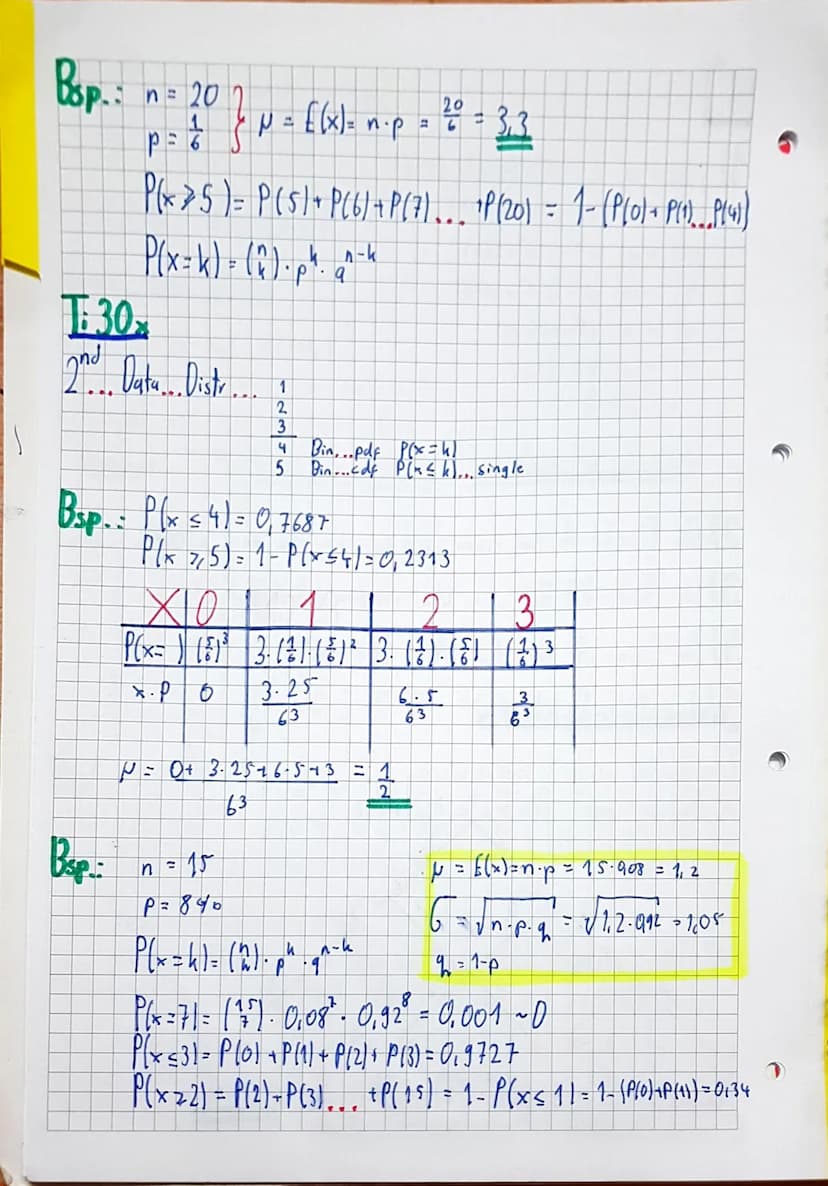 Bsp.: n = 20 } μ = E(x) = n·p = 20/6 = 3,3
p = 1/6
P(x ≥ 5) = P(5) + P(6) + P(7) ... + P(20) = 1 - (P(0) + P(1) ... P(4))
P(x = k) = (n k) · p^k · q^n-k
Ti 30x
2nd ... Data ... Distr ... 1
2
3
4 Bin...pdf P(x = k)
5 Bin...cdf P(x ≤ k) ... single
Bsp.: P(x ≤ 4) = 0,7687
P(x ≥ 5) = 1 - P(x ≤ 4) = 0,2313
X | 0 | 1 | 2 | 3
P(x= ) | (5/6)^3 | 3·(1/6)·(5/6)^2 | 3·(1/6)·(5/6) | (1/6)^3
x·P | 0 | 3·25/6^3 | 6·5/6^3 | 3/6^3
μ = 0 + 3·25 + 6·5 + 3 / 6^3 = 1/2
Bsp.: n = 15
p = 8%
P(x = k) = (n k) · p^k · q^n-k
μ = E(x) = n·p = 15·0,08 = 1,2
σ = √n·p·q = √1,2·0,92 = 1,05
q = 1-p
P(x = 7) = (15 7) · 0,08^7 · 0,92^8 = 0,001 ~ 0
P(x ≤ 3) = P(0) + P(1) + P(2) + P(3) = 0,9727
P(x ≥ 2) = P(2) + P(3) ... + P(15) = 1 - P(x ≤ 1) = 1 - (P(0) + P(1)) = 0,34